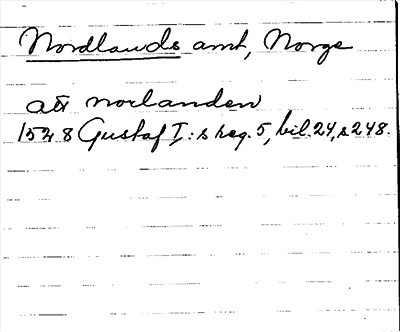 Nordlands amt, Norge
att norlanden
1528 Gustaf I:s reg. 5, bil. 24, s 248.